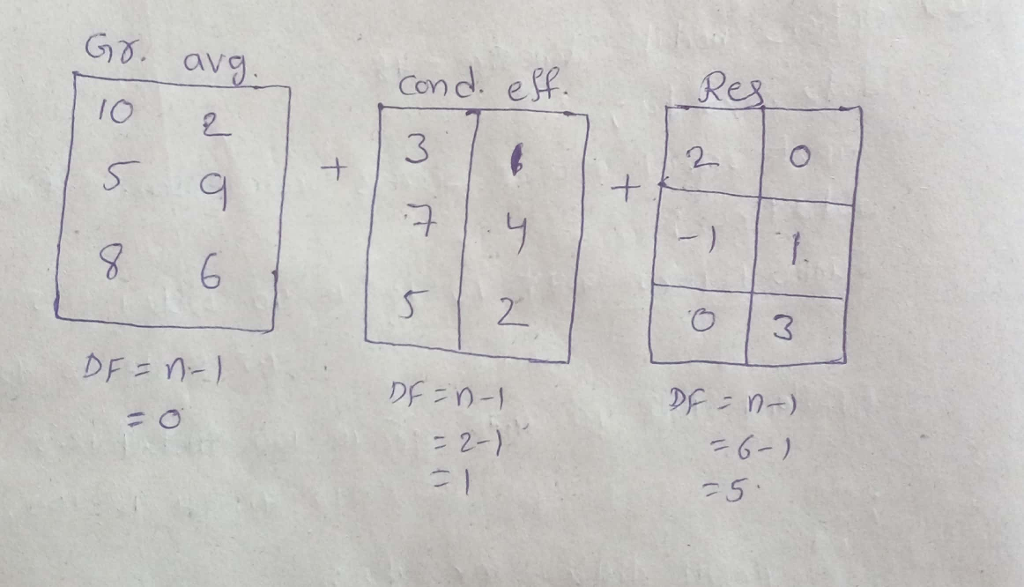 Gr. avg.
10 2
5 9
8 6
DF = n-1
= 0
+
Cond. eff.
3 1
7 4
5 2
DF = n-1
= 2-1
= 1
+
Res
2 0
-1 1
0 3
DF = n-1
= 6-1
= 5